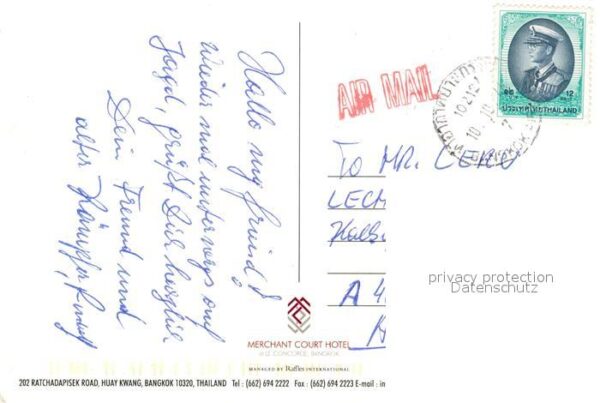 Hallo my friend!
Wieder mal unterwegs auf
Jagd, grüßt Dich herzlich
Dein Freund und
alter Kämpfer, Rudolf
AIR MAIL
๑๒ 12
ประเทศไทย THAILAND
TO MR. LERO
LECH
A 4
privacy protection
Datenschutz
MERCHANT COURT HOTEL
LE CONCORDE, BANGKOK
MANAGED BY Raffles INTERNATIONAL
202 RATCHADAPISEK ROAD, HUAY KWANG, BANGKOK 10320, THAILAND Tel : (662) 694 2222 Fax : (662) 694 2223 E-mail : in